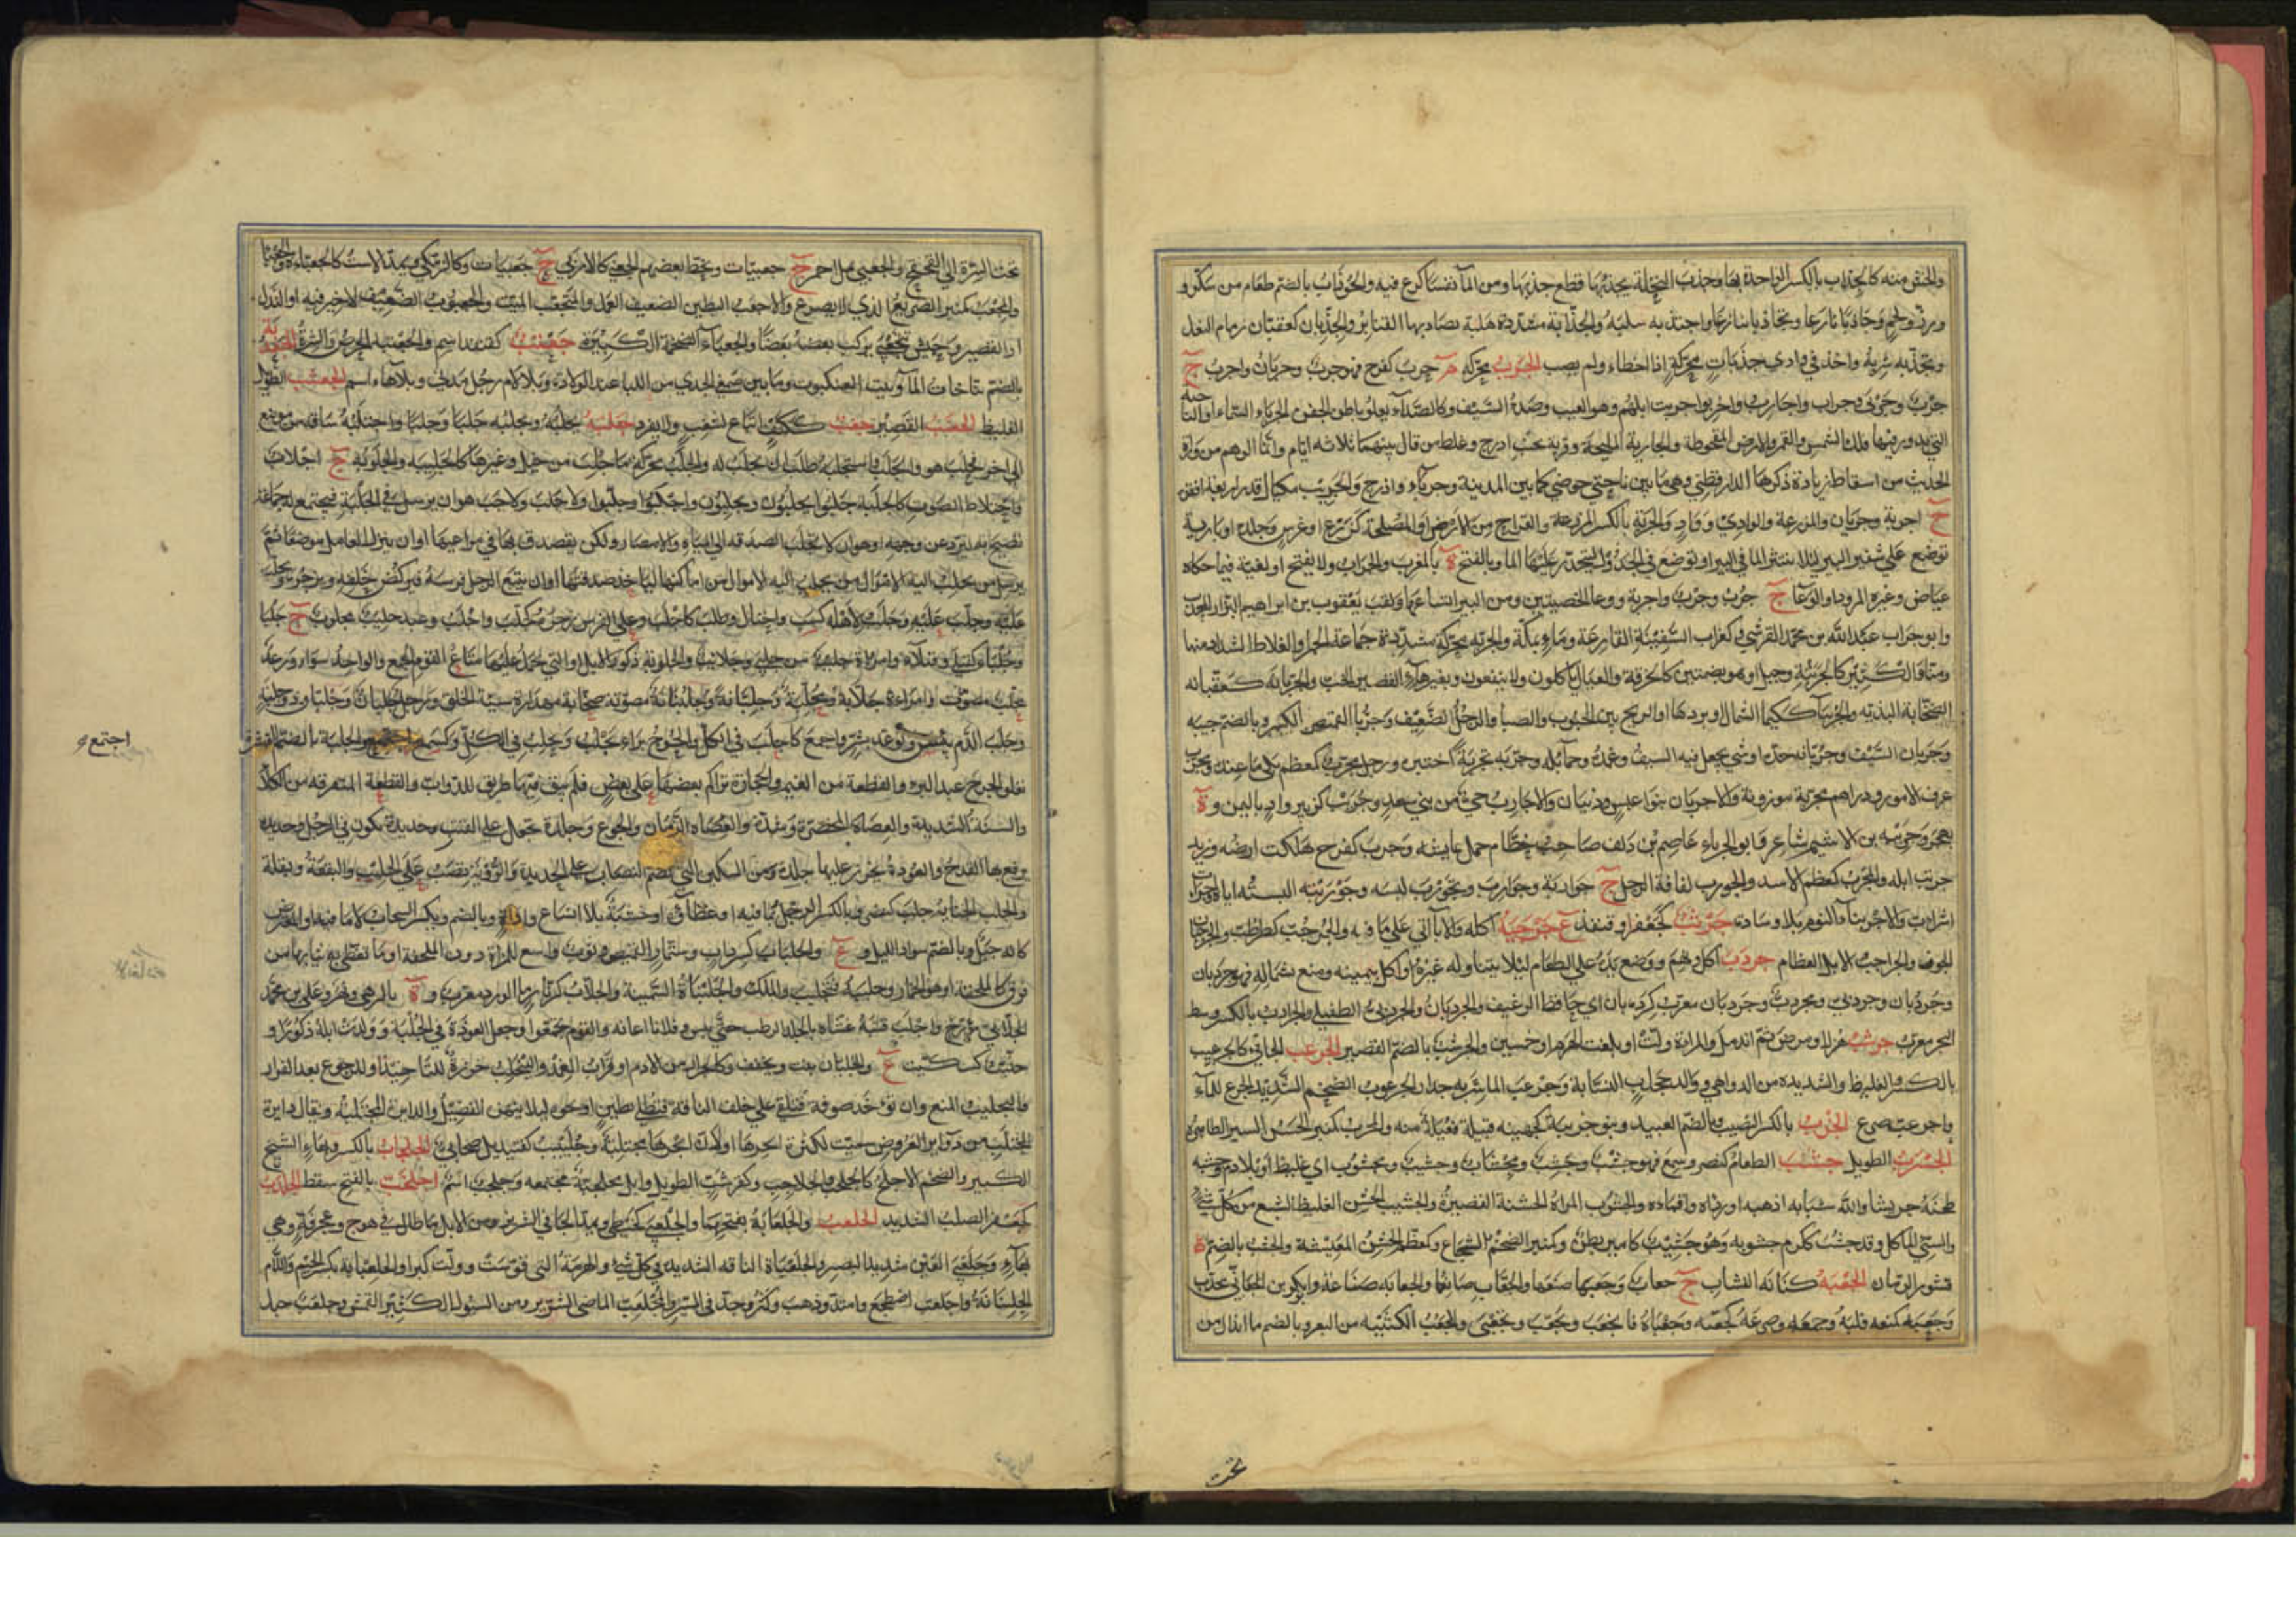 والخنق منه كالجذاب بالكسر الواحدة بهاء وجذب النخلة يجذبها قطع جذبها ومن الماء نفسا كرع فيه والجوذاب بالضم طعام من سكر و
ورز ولحم وجاذبا نازعا وتجاذبا تنازعا واجتذبه سلبه والجذابة مشددة هلبة يصاد بها القنابر والجذبان كعفتان زمام النعل
وتجذبه شربه واخذ في وادي جذبات محركة اذا اخطاء ولم يصب الجرب محركة م جرب كفرح فهو جرب وجربان واجرب ج
جرب وجربى وجراب واجارب واجربوا جربت ابلهم وهو العيب وصدء السيف وكالصداء يعلو باطن الجفن والجرباء السماء او الناحية
التي يدور فيها فلك الشمس والقمر والارض المقحوطة والجارية المليحة وقرية بجنب اذرح وغلط من قال بينهما ثلاثة ايام وانما الوهم من رواة
الحديث من اسقاط زيادة ذكرها الدارقطني وهي ما بين ناحيتي حوضي كما بين المدينة وجرباء واذرح والجريب مكيال قدر اربعة اقفزة
ج اجربة وجربان والمزرعة والوادي وواد والجربة بالكسر المزرعة والقراح من الارض او المصلحة لزرع او غرس وجلدة او بارية
توضع على شفير البير لئلا ينتثر الماء في البير او توضع في الجدول ليتحدر عليها الماء وبالفتح ة بالمغرب والجراب ولا يفتح او لغية فيما حكاه
عياض وغيره المزود او الوعاء ج جرب وجرب واجربة ووعاء الخصيتين ومن البير اتساعها ولقب يعقوب بن ابراهيم البزار المحدث
وابو جراب عبد الله بن محمد القرشي وكغراب السفينة الفارغة وماء بمكة والجربة محركة مشددة جماعة الحمر او الغلاظ الشداد منها
ومنا والكثير كالجرنبة وجبل او هو بضمتين كالحزقة والعيال ياكلون ولا ينفعون وبغير هاء القصير الخب والجربانة كعفتانة
الصخابة البذية والجربياء ككيمياء الشمال او بردها او الريح بين الجنوب والصبا والرجل الضعيف وجربا القميص بالكسر وبالضم جيبه
وجربان السيف وجربانه حده او شي يجعل فيه السيف وغمده وحمائله وجربه تجربة اختبره ورجل مجرب كمعظم بلي ما عنده ومجرب
عرف الامور ودراهم مجربة موزونة والاجربان بنوا عبس وذبيان والاجارب حي من بني سعد وجريب كزبير واد باليمن و ة
بهجر وجريبة بن الاشيم شاعر وابو الجرباء عاصم بن دلف صاحب خطام جمل عايشة وجرب كفرح هلكت ارضه وزيد
جربت ابله والمجرب كمعظم الاسد والجورب لفافة الرجل ج جواربة وجوارب وتجورب لبسه وجوربته البسته اياه
اشرات والاجرنباء النوم بلا وسادة جرثب كجعفر او قنفذ ع جرجبه اكله والاناء اتى على ما فيه والجرجب كطرطب والجرجبان
الجوف والجراجب الابل العظام جردب اكل ونهم ووضع يده على الطعام لئلا يتناوله غيره او اكل بيمينه ومنع بشماله فهو جردبان
وجردبان وجردبي ومجردب وجردبان معرب كرده بان اي حافظ الرغيف والجردبان والجردبي الطفيلي والجرداب بالكسر وسط
البحر معرب جرشب هزل او مرض ثم اندمل والمراة ولت او بلغت الهرم او خمسين والجرشب بالضم القصير الجرعب الجافي كالجرعيب
بالكسر والغليظ والشديدة من الدواهي ووالد جعاب النسابة وجرعب الماء شربه جيدا والجرعوب الضخم الشديد الجرع للماء
واجرعب صرع الجزب بالكسر النصيب وبالضم العبيد وبنو جزيبة كجهينة قبيلة فعيلة منه والمجزب كمنبر الحسن السبر الطاهره
الجسرب الطويل جشب الطعام كنصر وسمع فهو جشب وجشب ومجشاب وجشيب ومجشوب اي غليظ او بلا ادم وجشبه
طحنه جريشا والله شبابه اذهبه او رداه واقماه والجشوب المراة الخشنة القصيرة والجشيب الخشن الغليظ البشع من كل شي
والسيئ الماكل وقد جشب ككرم جشوبة وهو جشيب كامير بطن وكمنبر الضخم الشجاع وكمعظم الخشن المعيشة والجشب بالضم ة
قشور الرمان الجعبة كنانة النشاب ج جعاب وجعبها صنعها والجعاب صانعها والجعابة صناعته وابو بكر بن الجعابي محدث
وجعبه كمنعه قلبه وجمعه وصرعه كجعبه وجعباه فانجعب وتجعب وتجعبى والجعب الكثيبة من البعر وبالضم ما اندال من
تحت
تحت السرة الى القحقح والجعبى نمل احمر ج جعبيات وبخط بعضهم الجعبى كالاربى ج جعبيات وكالزمكي ويمد الاست كالجعباءة والجعباء
والمجعب كمنبر الصريع الذي لا يصرع والاجعب البطين الضعيف العمل والمتجعب الميت والجعبوب الضعيف لا خير فيه او النذل
او القصير وجيش تجعبى يركب بعضه بعضا والجعباء الضخمة الكبيرة جعتب كقنفذ اسم والجعتبة الحرص والشره
بالضم نفاخات الماء وبيت العنكبوت وما بين صمغي الجدي من اللبا عند الولادة وبلا لام رجل مدني وبلا هاء اسم الجعشب الطويل
الغليظ الجعنب القصير جغب ككتف اتباع لشغب ولا يفرد جلبه يجلبه ويجلبه جلبا وجلبا واجتلبه ساقه من موضع
الى اخر فجلب هو وانجلب واستجلبه طلب ان يجلب له والجلب محركة ما جلب من خيل وغيرها كالجليبة والجلوبة ج اجلاب
واختلاط الصوت كالجلبة جلبوا يجلبون ويجلبون واجلبوا وجلبوا ولا جلب ولا جنب هو ان يرسل في الحلبة فيجتمع له جماعة
تصيح به ليرد عن وجهه او هو ان لا تجلب الصدقة الى المياه والامصار ولكن يتصدق بها في مراعيها او ان ينزل العامل موضعا ثم
يرسل من يجلب اليه الاموال من اماكنها لياخذ صدقتها او ان يتبع الرجل فرسه فيركض خلفه ويزجره ويجلب
عليه وجلب لاهله كسب واحتال وطلب كاجلب وعلى الفرس زجره كجلب واجلب وعبد جليب مجلوب ج جلبا
وجلباء كقتلى وقتلاء وامراة جليب من جلبى وجلائب والجلوبة ذكور الابل او التي يحمل عليها متاع القوم الجمع والواحد سواء ورعد
مجلب مصوت وامراة جلابة ومجلبة وجلبانة وجلبنانة مصوتة صخابة مهذارة سيئة الخلق ورجل جلبان وجلبان ذو جلبة
وجلب الدم يبس وتوعد بشر وجمع كاجلب في الكل والجرح برا يجلب ويجلب في الكل وكسمع اجتمع والجلبة بالضم القشرة
تعلو الجرح عند البرء والقطعة من الغيم والحجارة تراكم بعضها على بعض فلم يبق فيها طريق للدواب والقطعة المتفرقة من الكلا
والسنة الشديدة والعضاه المخضرة وشدة الزمان والجوع وجلدة تجعل على القتب وحديدة تكون في الرحل وحديدة
يرقع بها القدح والعوذة يخرز عليها جلدة ومن السكين التي تضم النصاب على الحديدة والروبة تصب على الحليب والبقعة وبقلة
والجلب الجناية جلب كنصر وبالكسر الرحل بما فيه او غطاؤه او خشبه بلا انساع واداة وبالضم ويكسر السحاب لا ماء فيه او المعترض
كانه جبل وبالضم سواد الليل و ع والجلباب كسرداب وسنمار القميص وثوب واسع للمراة دون الملحفة او ما تغطي به ثيابها من
فوق كالملحفة او هو الخمار وجلببه فتجلبب والملك والجلنباة السمينة والجلاب كزنار ماء الورد معرب و ة بالرهى ونهر وعلي بن محمد
الجلابي مؤرخ واجلب قتبه غشاه بالجلد الرطب حتى يبس وفلانا اعانه والقوم تجمعوا وجعل العوذة في الجلبة وولدت ابله ذكورا و
جليب كسكيت ع والجلبان نبت ويخفف وكالجراب من الادم او قراب الغمد والينجلب خرزة للتاخيذ او للرجوع بعد الفرار
والتجليب المنع وان توخذ صوفة فتلقى على خلف الناقة فتطلى بطين او نحوه لئلا ينهزه الفصيل والدايرة المجتلبة ويقال دايرة
المجتلب من دواير العروض سميت لكثرة ابحرها او لان ابحرها مجتلبة وجليبيب كقنيديل صحابي الجلحاب بالكسر وبهاء الشيخ
الكبير والضخم الاجلح كالجلحب والجلاحب وكقرشب الطويل وابل مجلحبة مجتمعة وجلحب اسم اجلخب بالفتح سقط الجلدب
كجعفر الصلب الشديد الجلعب والجلعابة بفتحهما والجلعبى كحبنطى ويمد الجافي الشرير ومن الابل ما طال في هوج وعجرفة وهي
بهاء وجلعبى العين شديد البصر والجلعباة الناقة الشديدة في كل شي والهرمة التي قوست وولت كبرا والجلعبانة بكسر الجيم واللام
الجلبانة واجلعب اضطجع وامتد وذهب وكثر وجد في السير والمجلعب الماضي الشرير ومن السيول الكثير القمش وجلعب جبل
اجتمع